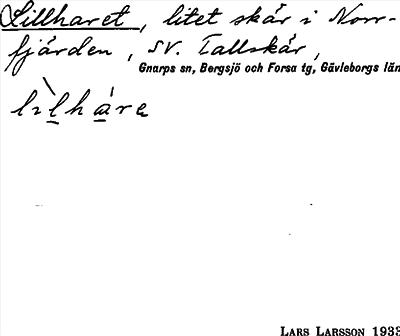 Lillharet, litet skär i Norr-
fjärden, sv. Tallskär,
Gnarps sn, Bergsjö och Forsa tg, Gävleborgs län
LARS LARSSON 1933